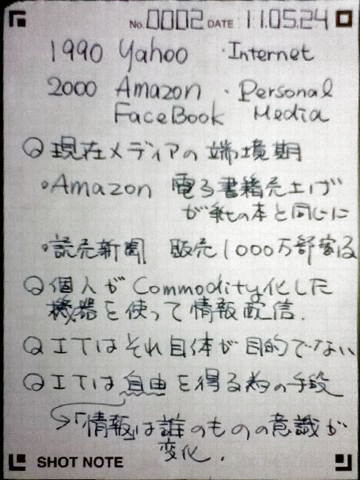 No. 0002 DATE 11.05.24
1990 Yahoo ・Internet
2000 Amazon ・Personal
FaceBook Media
◎現在メディアの端境期
・Amazon 電子書籍売上げ
が紙の本と同じに
・読売新聞 販売1000万部割る
◎個人がCommodity化した
機器を使って情報配信.
◎ITはそれ自体が目的でない
◎ITは自由を得る為の手段
→「情報」は誰のものの意識が
変化.
SHOT NOTE